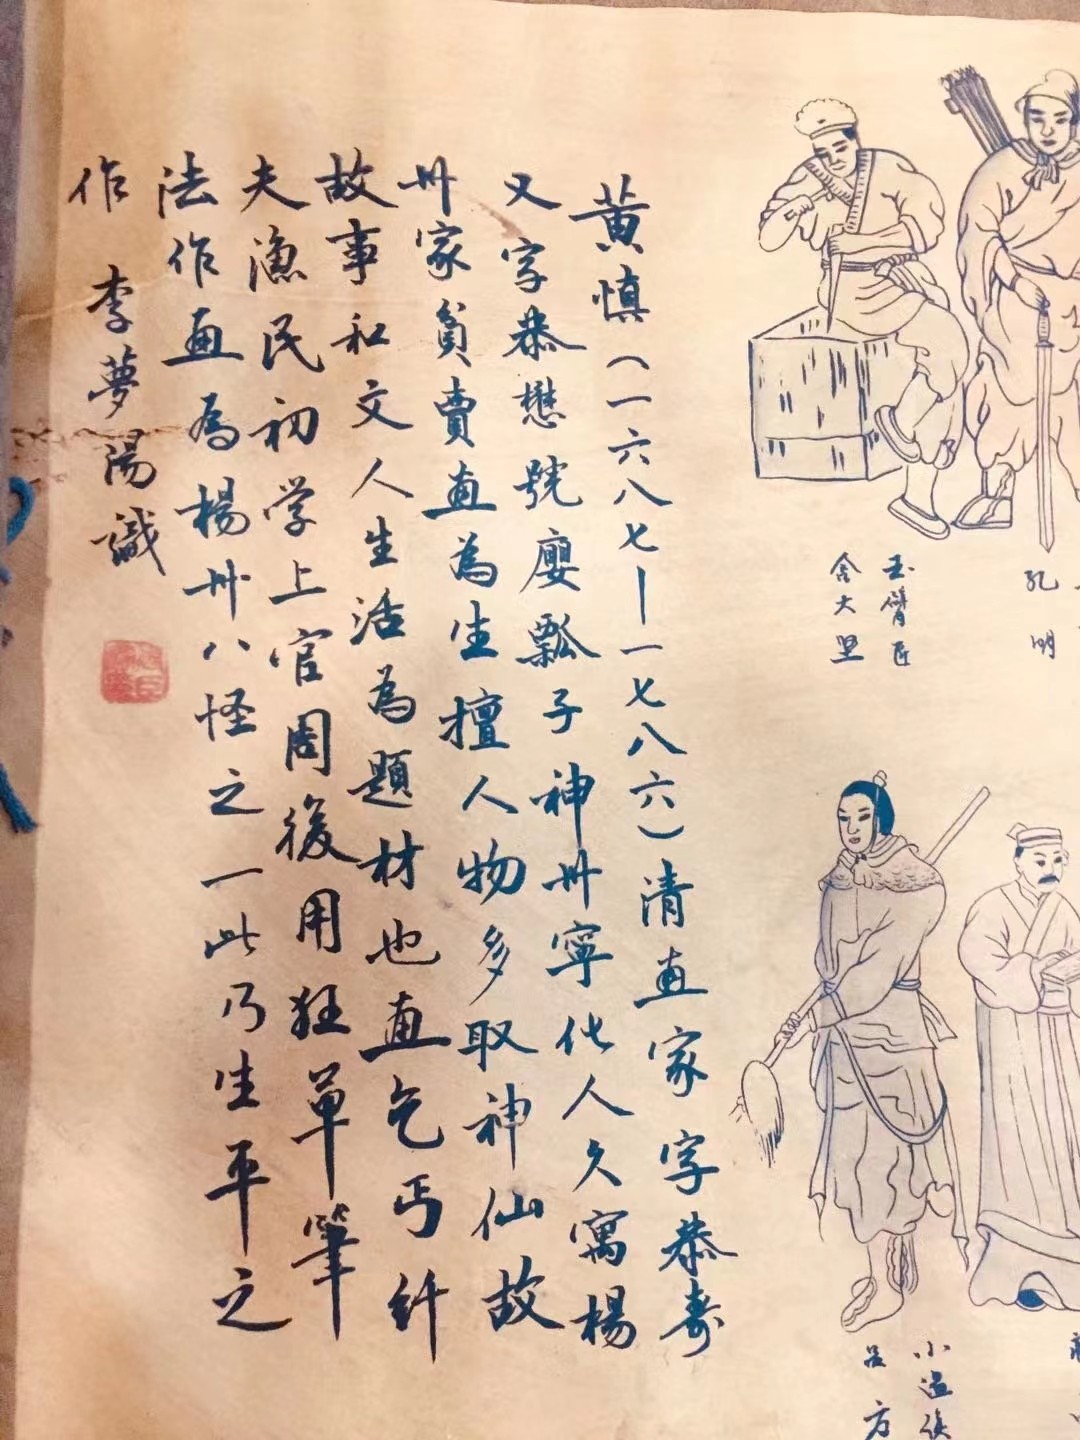 孔明
玉臂匠
金大坚
小温侯
吕方
黄慎(一六八七—一七八六)清画家字恭寿
又字恭懋號廮瓢子神州寧化人久寓楊
州家貧賣画為生擅人物多取神仙故
故事和文人生活為題材也画乞丐纤
夫漁民初学上官周後用狂草筆
法作画為楊州八怪之一此乃生平之
作 李夢陽識